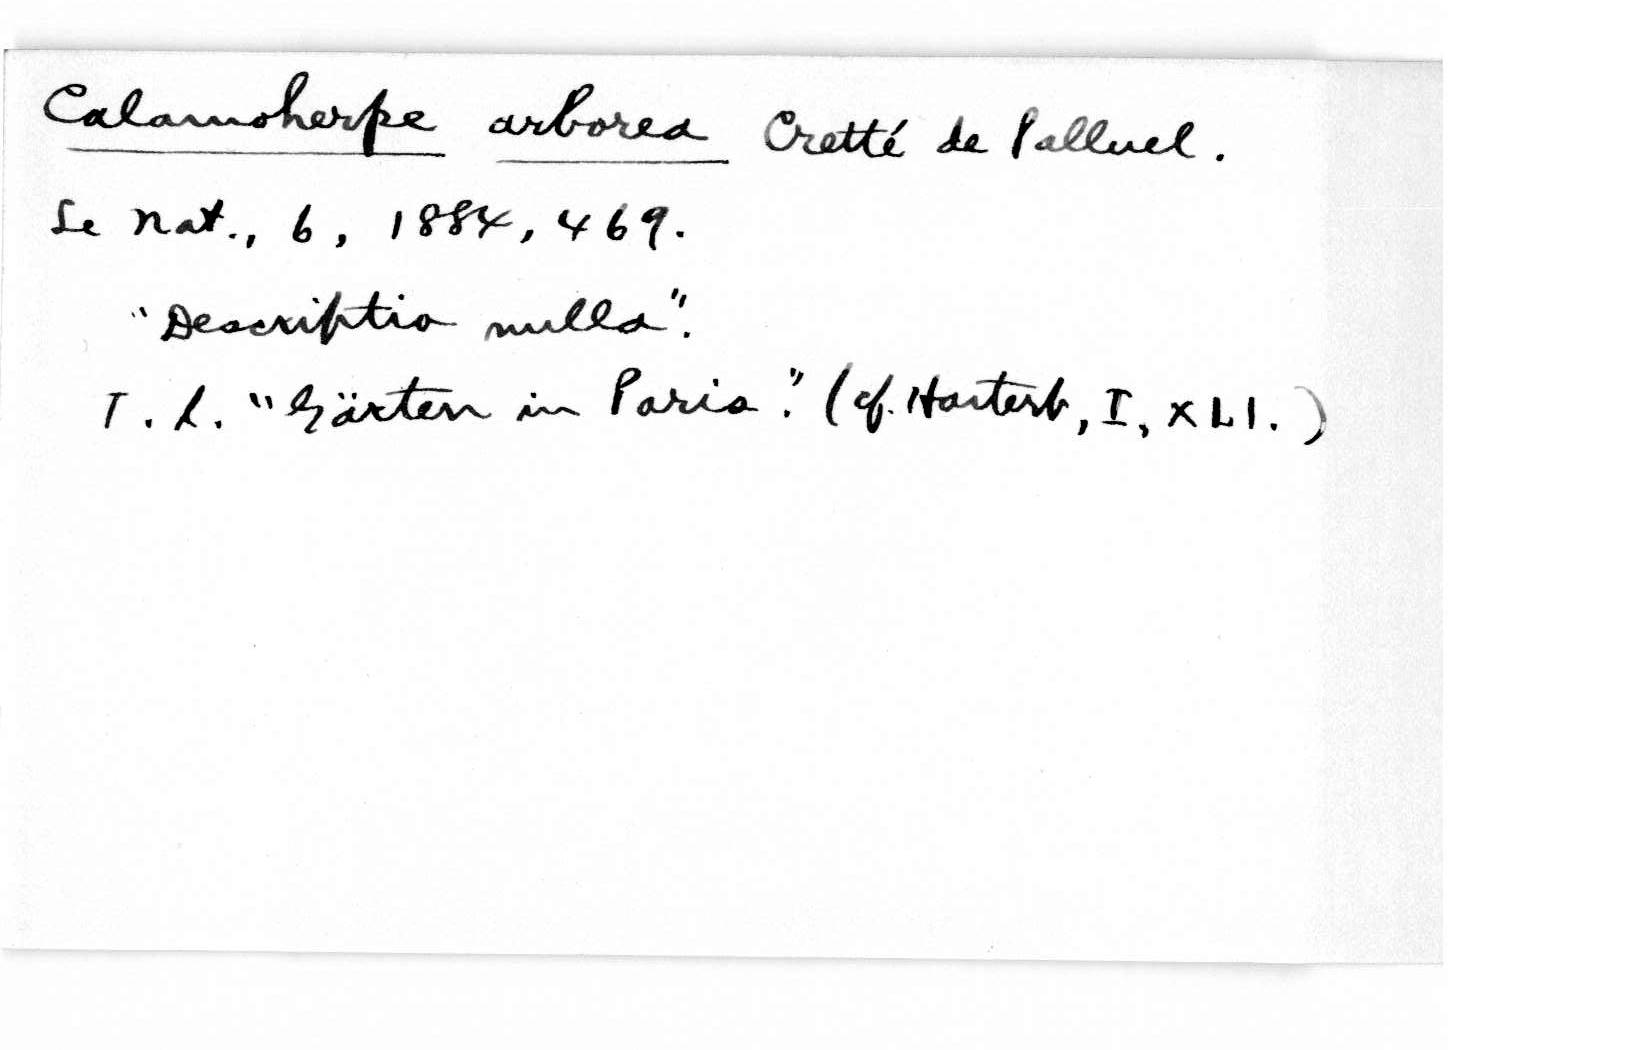 Calamoherpe arborea Cretté de Palluel.
Le Nat., 6, 1884, 469.
"Descriptio nulla".
T. L. "Gärten in Paris". (cf. Hartert, I, XLI.)